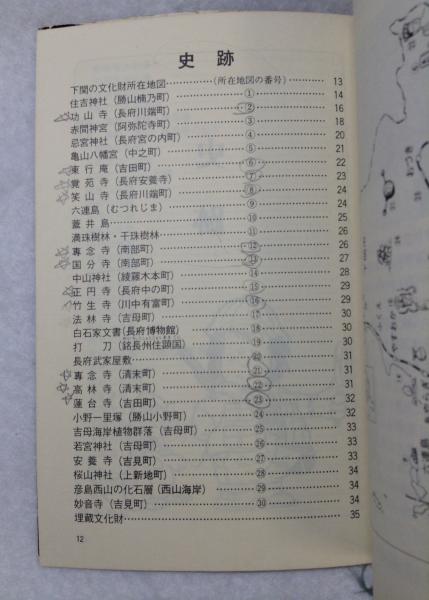 史跡
下関の文化財所在地図…………(所在地図の番号)…………13
住吉神社(勝山楠乃町)…………①…………14
功山寺(長府川端町)…………②…………16
赤間神宮(阿弥陀寺町)…………③…………18
忌宮神社(長府宮の内町)…………④…………20
亀山八幡宮(中之町)…………⑤…………21
東行庵(吉田町)…………⑥…………22
覚苑寺(長府安養寺)…………⑦…………23
笑山寺(長府川端町)…………⑧…………24
六連島(むつれじま)…………⑨…………24
蓋井島…………⑩…………25
満珠樹林・干珠樹林…………⑪…………26
専念寺(南部町)…………⑫…………26
国分寺(南部町)…………⑬…………27
中山神社(綾羅木本町)…………⑭…………28
正円寺(長府中の町)…………⑮…………29
竹生寺(川中有富町)…………⑯…………29
法林寺(吉母町)…………⑰…………30
白石家文書(長府博物館)…………⑱…………30
打刀(銘長州住顕国)…………⑲…………30
長府武家屋敷…………⑳…………31
専念寺(清末町)…………㉑…………31
高林寺(清末町)…………㉒…………31
蓮台寺(吉田町)…………㉓…………32
小野一里塚(勝山小野町)…………㉔…………32
吉母海岸植物群落(吉母町)…………㉕…………33
若宮神社(吉母町)…………㉖…………33
安養寺(吉見町)…………㉗…………33
桜山神社(上新地町)…………㉘…………34
彦島西山の化石層(西山海岸)…………㉙…………34
妙音寺(吉見町)…………㉚…………34
埋蔵文化財…………35
12